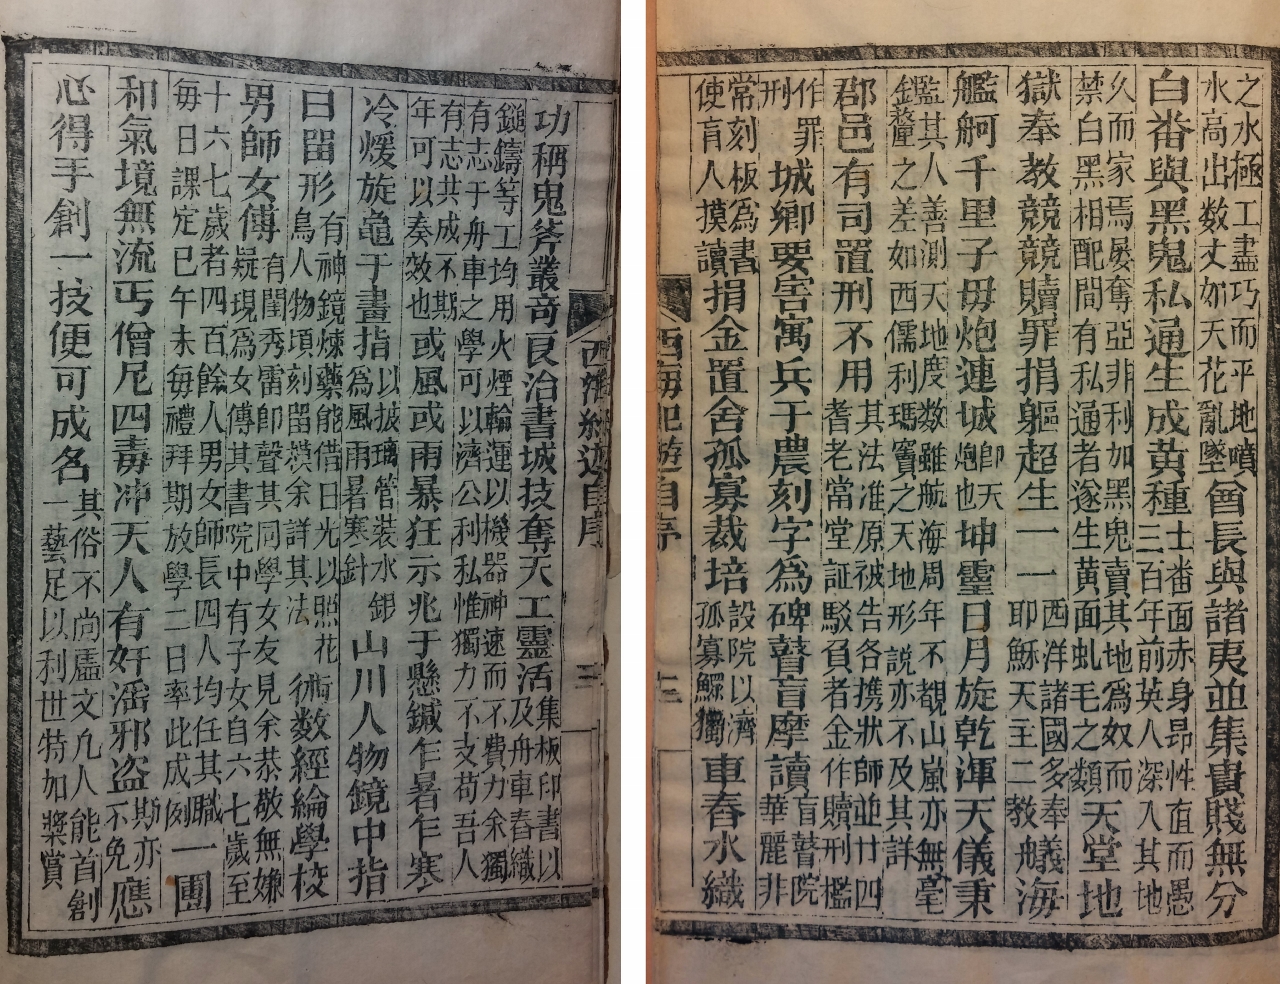 之水極工盡巧而平地噴
水高出数丈如天花亂墜
酋長與諸夷並集貴賤無分
白番與黑鬼私通生成黄種
士番面赤身昂性直而愚
三百年前英人深入其地
久而家焉屡奪亞非利加黑鬼賣其地爲奴而
禁白黑相配間有私通者遂生黄面虬毛之類
天堂地
獄奉教兢兢贖罪捐軀超生一一
西洋諸國多奉
耶穌天主二教
艤海
艦舸千里子母炮連城
即天
炮也
坤靈日月旋乾渾天儀秉
鑑其人善測天地度数雖航海周年不覩山嵐亦無毫
釐之差如西儒利瑪竇之天地形説亦不及其詳
郡邑有司置刑不用
其法准原被告各携狀師並廿四
耆老當堂証駁負者金作贖刑檻
作罪
刑
城鄉要害寓兵于農刻字爲碑瞽盲摩讀
盲瞽院
華麗非
常刻板爲書
使盲人摸讀
捐金置舍孤寡裁培
設院以濟
孤寡鰥獨
車舂水織
西海紀遊自序
三
西海紀遊自序
三
功稱鬼斧叢奇艮治書城技奪天工靈活
集板印書以
及舟車舂織
鎚鑄等工均用火煙輪運以機器神速而不費力余獨
有志于舟車之學可以濟公利私惟獨力不支苟吾人
有志共成不期
年可以奏效也
或風或雨暴狂示兆于懸鍼乍暑乍寒
冷煖旋龜于畫指
以玻璃管裝水銀
爲風雨暑寒針
山川人物鏡中指
日留形
有神鏡煉藥能借日光以照花
鳥人物頃刻留模余詳其法
術数經綸學校
男師女傅
有閨秀雷即聲其同學女友見余恭敬無嫌
疑現爲女傅其書院中有子女自六七歲至
十六七歲者四百餘人男女師長四人均任其職
毎日課定巳午未毎禮拜期放學二日率此成例
一團
和氣境無流丐僧尼四毒冲天人有奸淫邪盗
斯亦
不免
應
心得手創一技便可成名
其俗不尚虛文凢人能首創
一藝足以利世特加奬賞